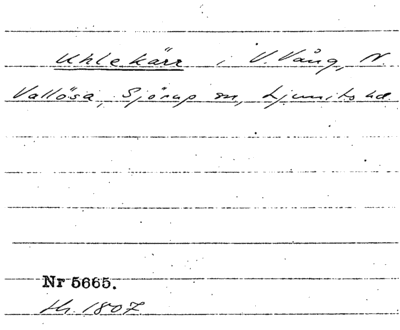 Uhlekärr i V. Vång, N.
Vallösa, Sjörup sn, Ljunits hd.
Nr 5665.
th. 1807